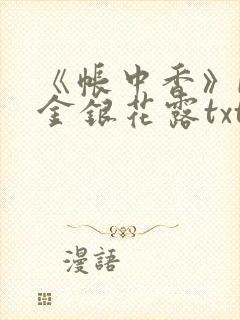 《帳中香》
金銀花露txt
漫語